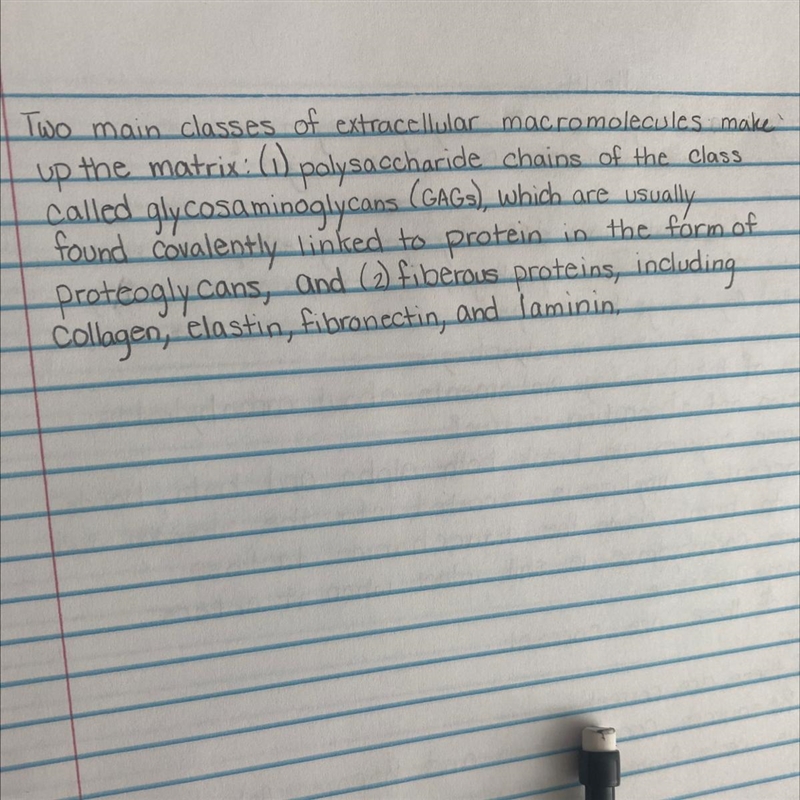 Two main classes of extracellular macromolecules make
up the matrix: (1) polysaccharide chains of the class
called glycosaminoglycans (GAGs), which are usually
found covalently linked to protein in the form of
proteoglycans, and (2) fiberous proteins, including
collagen, elastin, fibronectin, and laminin.